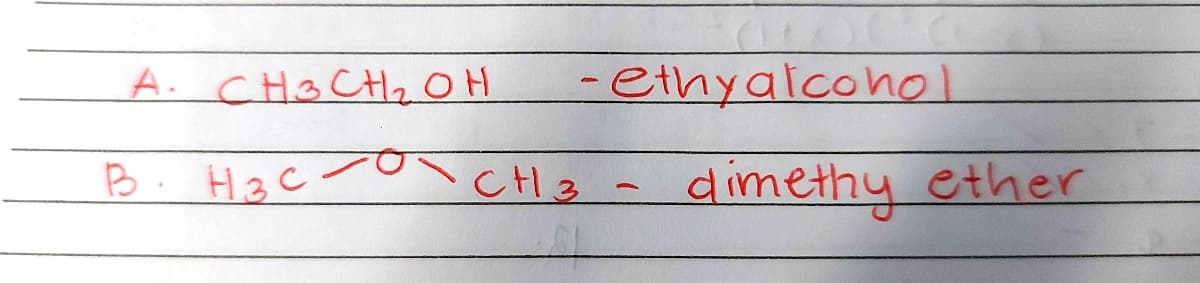 A. CH3CH2OH - ethyalcohol
B. H3C-O-CH3 - dimethy ether